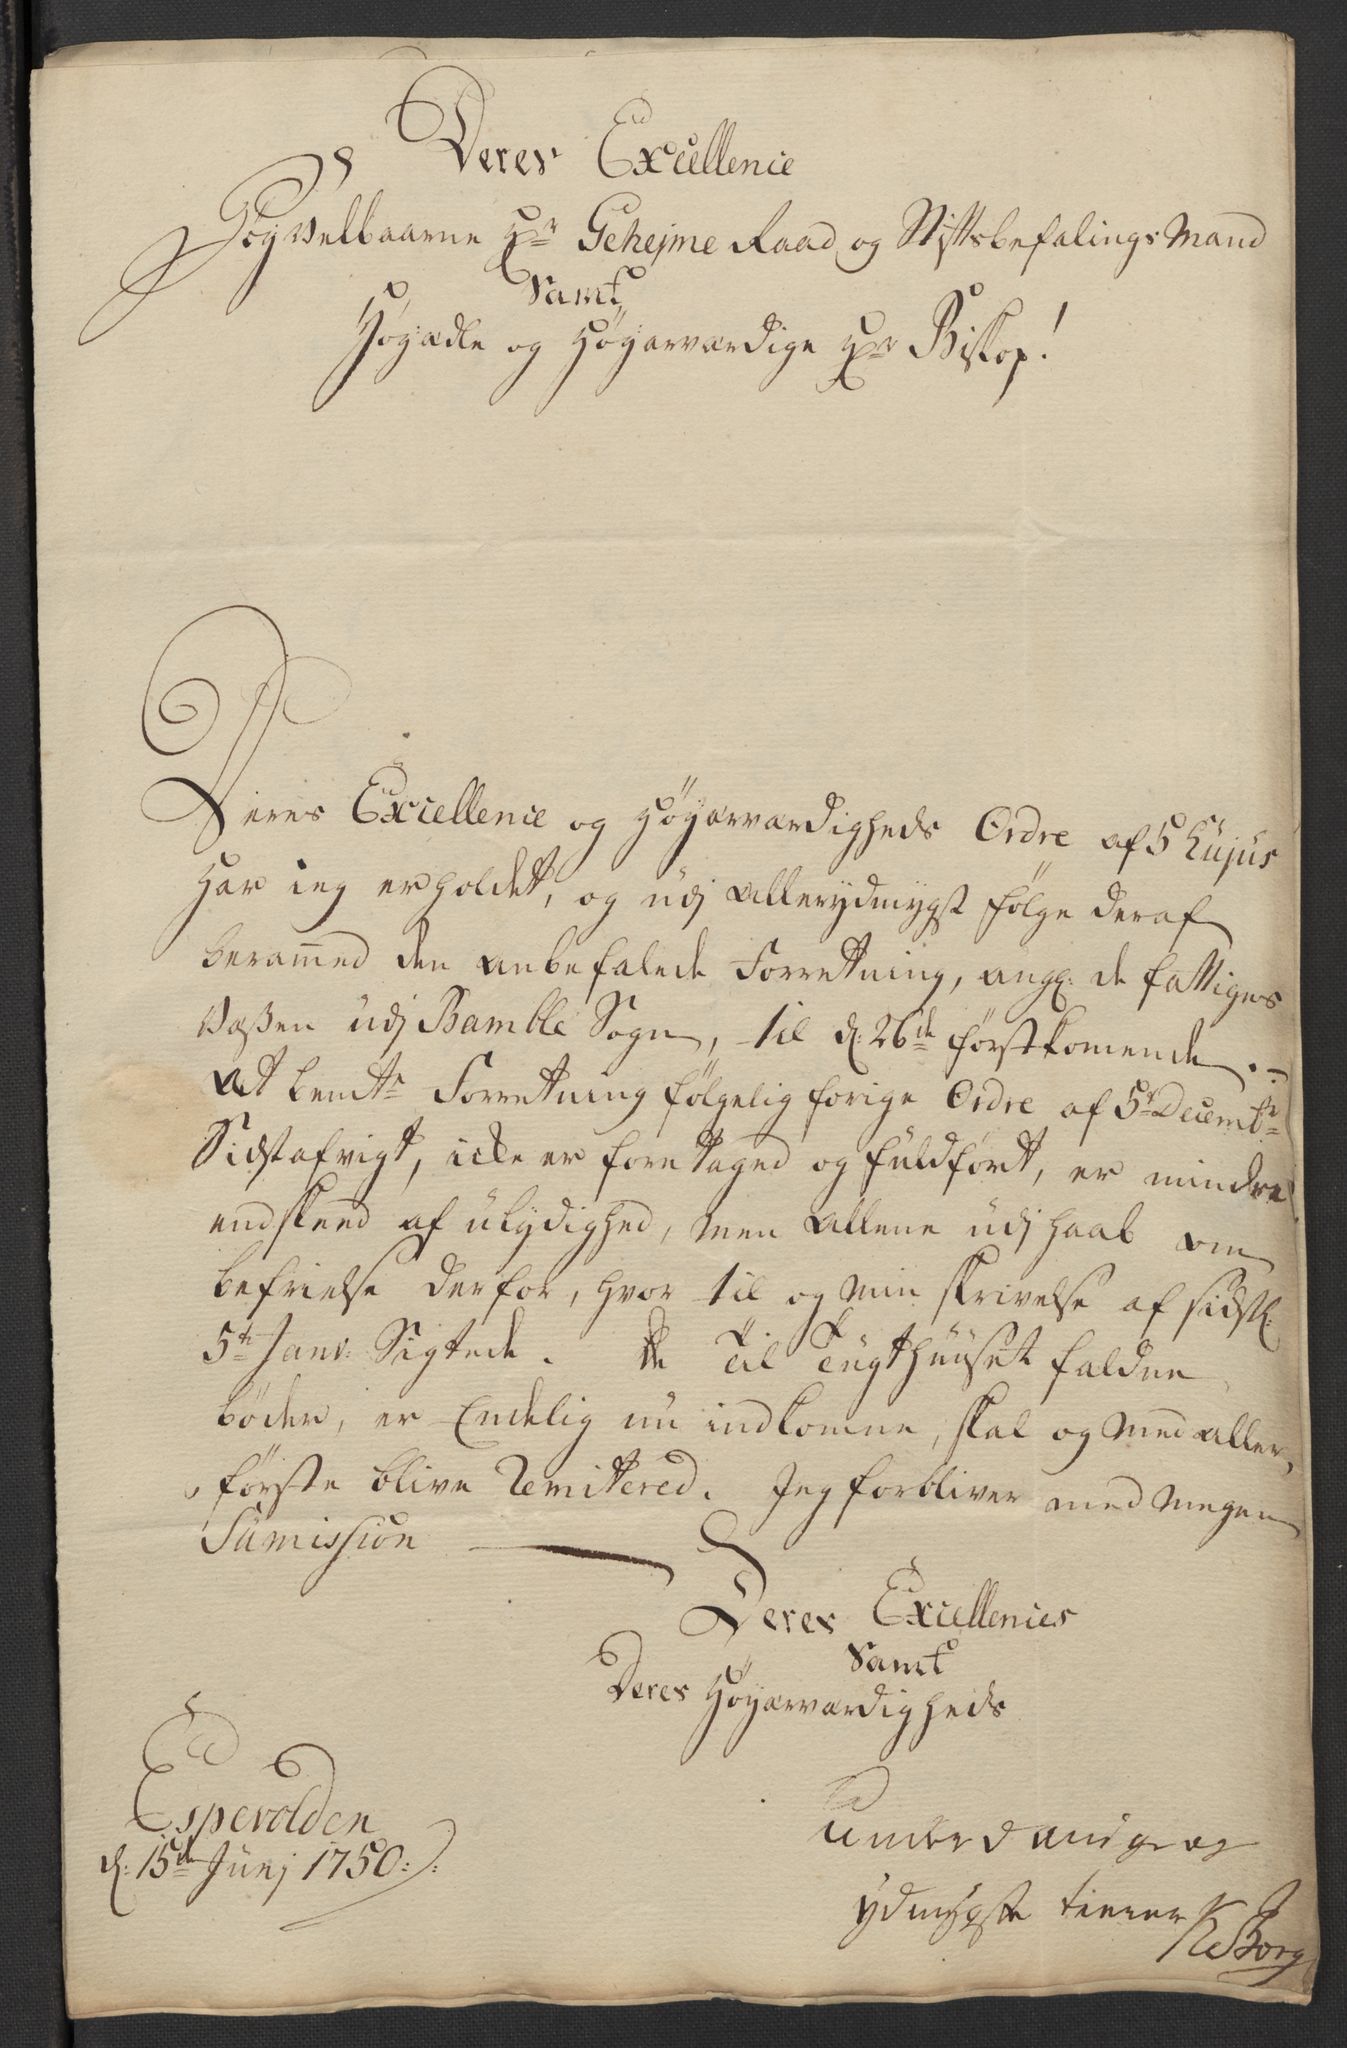 Deres Excellence
Høyvelbaarne Hr Gehejme Raad og Stiftsbefalings Mand
Samt
Høyædle og Høyærværdige Hr Biskop!
Deres Excellence og Høyærværdigheds Ordre af 5 Hujus
har ieg erholdet, og udj allerydmygst følge deraf
beramed den anbefalede Forretning, angg: de fattiges
Væsen udj Bamble Sogn, til d: 26de førstkomende.
At bemte Forretning følgelig forige Ordre af 5te Decembr
Sidstafvigt, icke er foretaged og fuldført, er mindre
end skeed af ulydighed, men allene udj haab om
befrielse derfor, hvor til og min skrivelse af sidstl:
5te Janv: Sigtede. De til Tugthuuset faldne
bøder, er Endelig nu indkomne, skal og med aller,
første blive Remittered. Jeg forbliver med megen
Sumission
Deres Excellences
Samt
Deres Høyærværdigheds
Espevolden
d: 15de Junj 1750.
underdanige og
ydmygste tiener
Borg